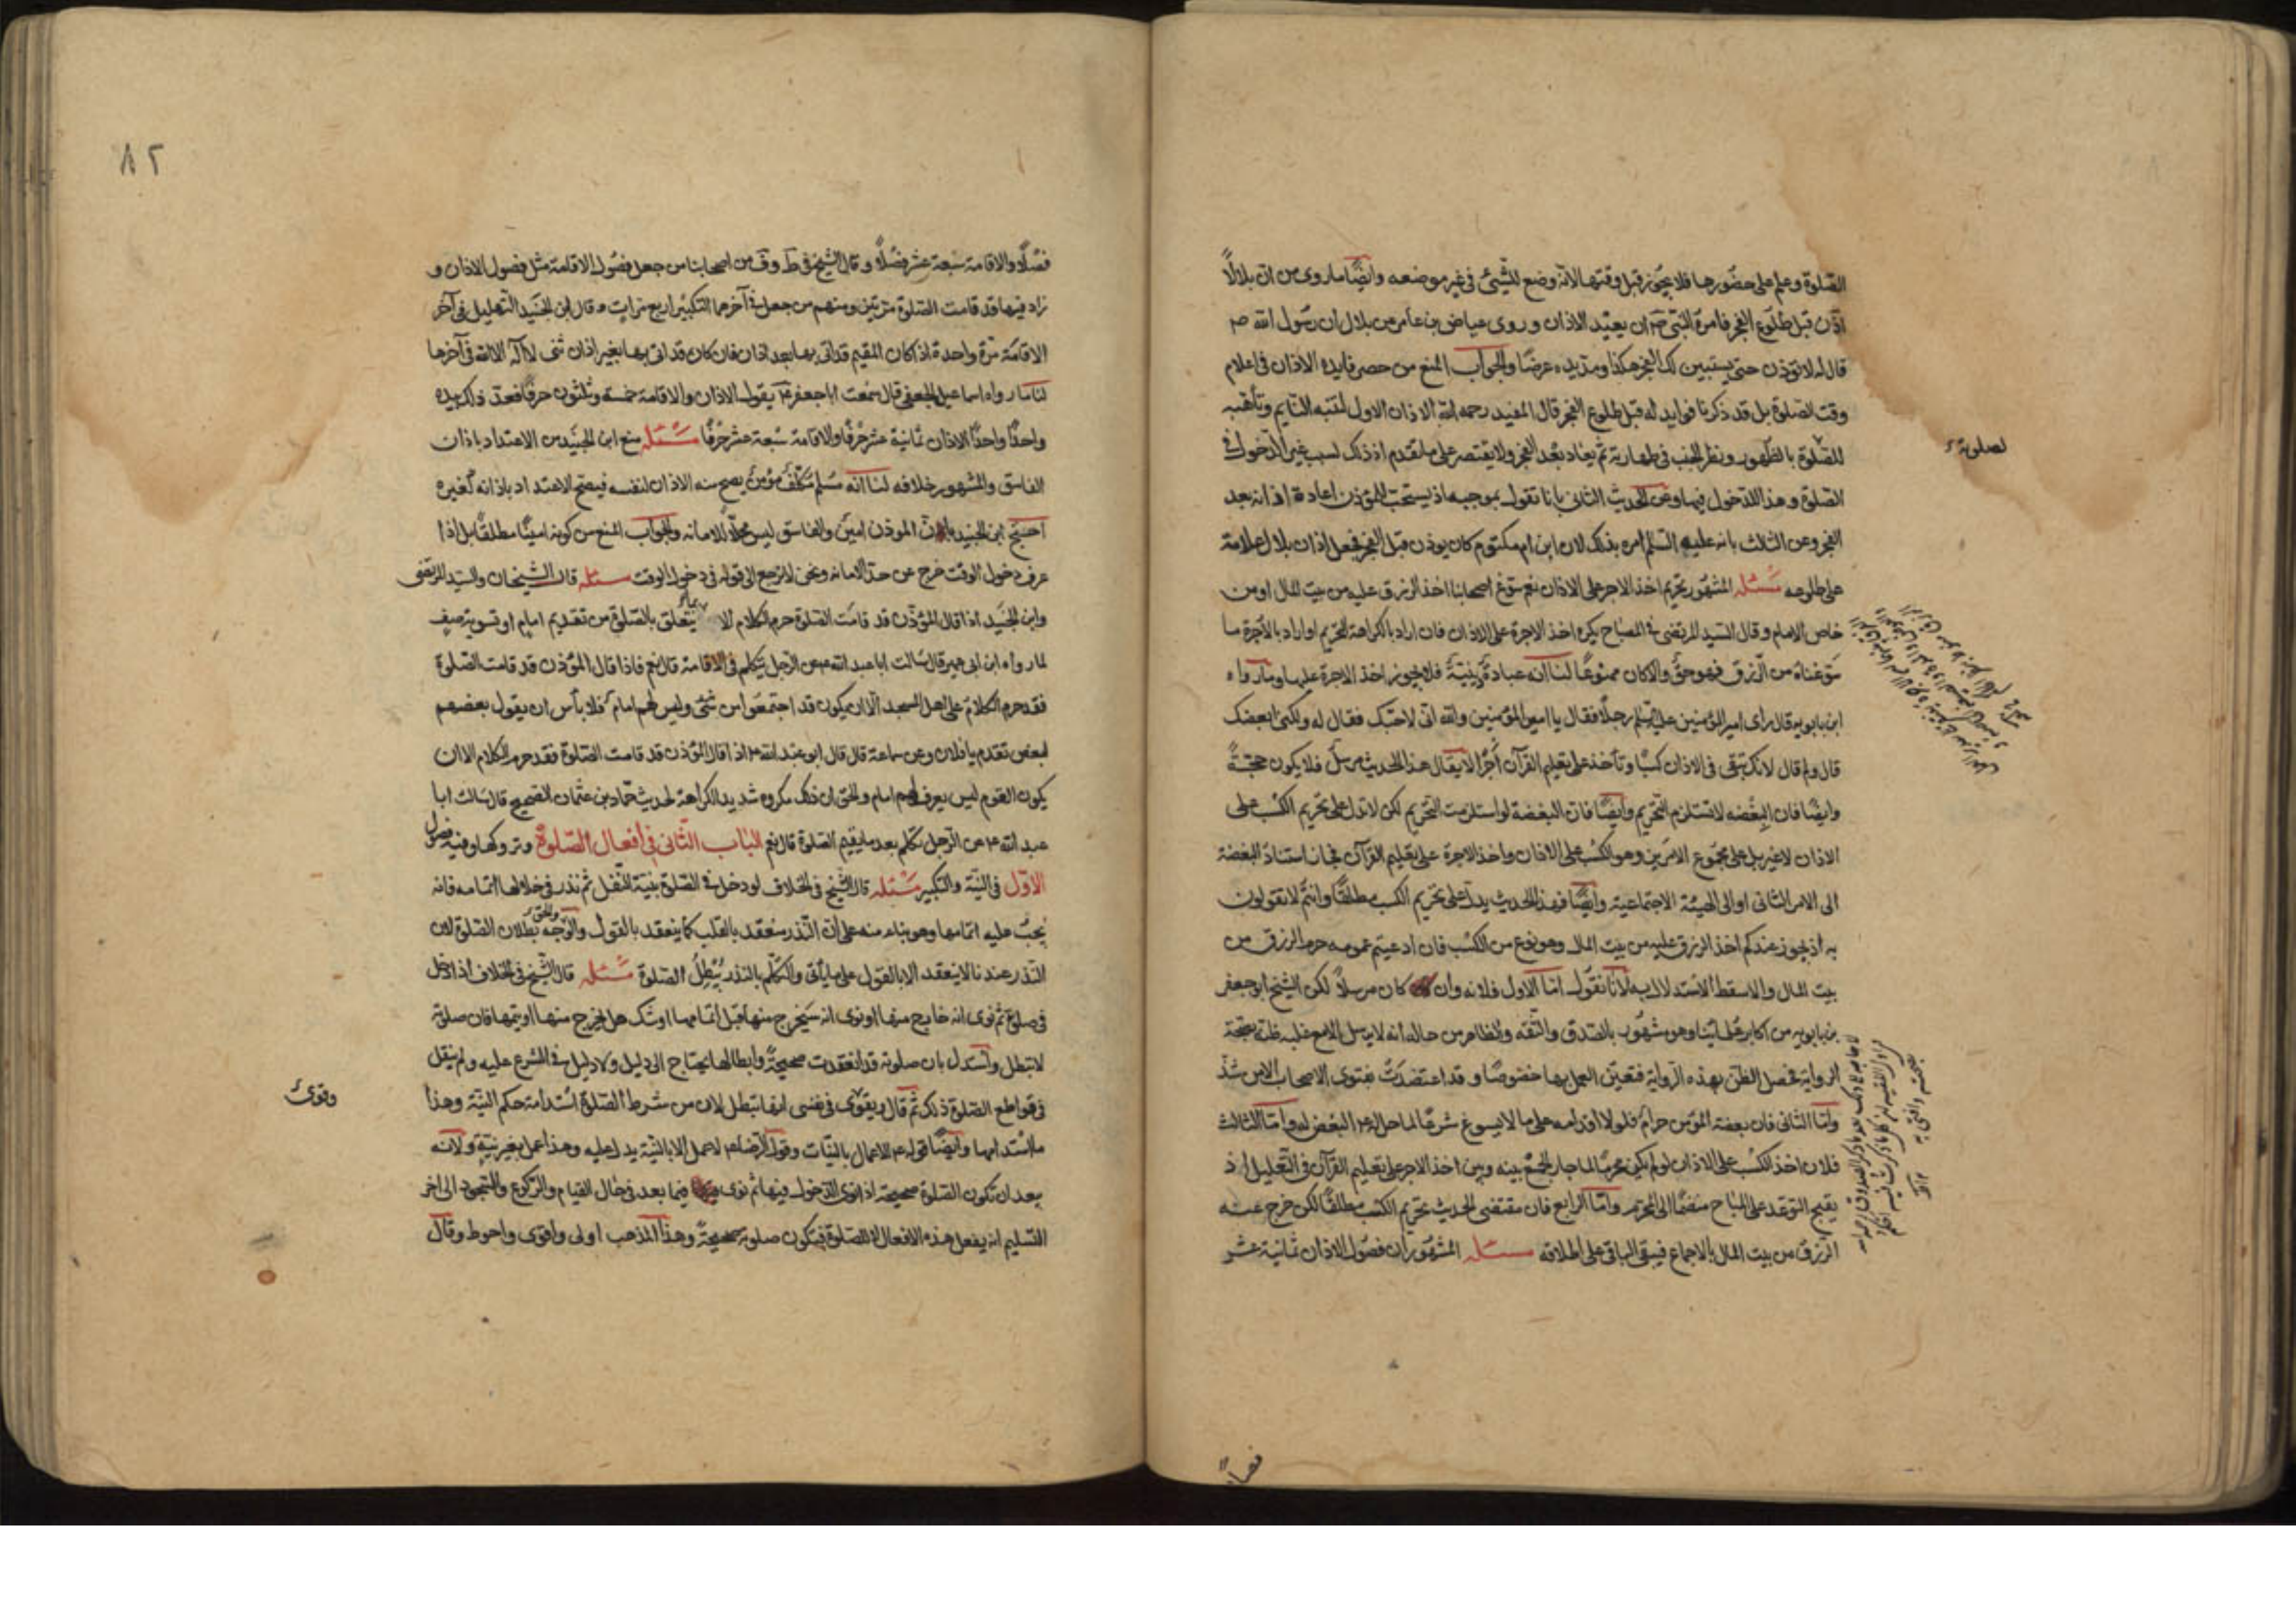 الصلوة وعلم على حضورها فلا يجوز قبل وقتها لانه وضع للشيئ في غير موضعه وايضا ما روى من ان بلالا
اذن قبل طلوع الفجر فامره النبي ص ان يعيد الاذان وروى عياض بن عامر عن بلال ان رسول الله ص
قال له لا تؤذن حتى يستبين لك الفجر هكذا ومد يده عرضا والجواب المنع من حصر فايدة الاذان في اعلام
وقت الصلوة بل قد ذكرنا فوايد له قبل طلوع الفجر قال المفيد رحمه الله الاذان الاول لتنبه النايم وتأهبه
للصلوة بالطهور ونظر الجنب في طهارته ثم يعاد بعد الفجر ولا يقتصر على ما تقدم اذ ذلك لسبب غير الدخول في
لصلوته
الصلوة وهذا للدخول فيها وعن الحديث الثاني بانا نقول بموجبه اذ يستحب للمؤذن اعادة اذانه بعد
الفجر وعن الثالث بانه عليه السلم امره بذلك لان ابن ام مكتوم كان يوذن قبل الفجر فجعل اذان بلال علامة
على طلوعه مسئله المشهور تحريم اخذ الاجر على الاذان نعم سوغ اصحابنا اخذ الرزق عليه من بيت المال او من
خاص الامام وقال السيد المرتضى في المصباح يكره اخذ الاجرة على الاذان فان اراد بالكراهة التحريم او اراد بالاجرة ما
سوغناه من الرزق فهو حق والا كان ممنوعا لنا انه عبادة دينية فلا يجوز اخذ الاجرة عليها وما رواه
ابن بابويه قال راى امير المؤمنين عليه السلم رجلا فقال يا امير المؤمنين والله انى لاحبك فقال له ولكني ابغضك
قال ولم قال لانك تبقى في الاذان كسبا وتأخذ على تعليم القرآن اجرا لا يقال هذا الحديث مرسل فلا يكون حجة
وايضا فان البغضه لا تستلزم التحريم وايضا فان البغضة لو استلزمت التحريم لكن لا تدل على تحريم الكسب على
الاذان لا غير بل على مجموع الامرين وهو الكسب على الاذان واخذ الاجرة على تعليم القرآن فجاز استناد البغضة
الى الامر الثانى او الى الهيئة الاجتماعية وايضا فهذا الحديث يدل على تحريم الكسب مطلقا وانتم لا تقولون
به اذ يجوز عندكم اخذ الرزق عليه من بيت المال وهو نوع من الكسب فان ادعيتم عمومه حرم الرزق من
بيت المال والا سقط الاستدلال به لانا نقول اما الاول فلانه وان كان مرسلا لكن الشيخ ابو جعفر
بن بابويه من اكابر علمائنا وهو مشهور بالصدق والثقه والظاهر من حاله انه لا يرسل الا مع غلبه ظنه بصحة
الرواية فحصل الظن بهذه الرواية فتعين العمل بها خصوصا وقد اعتضدت بفتوى الاصحاب الا من شذ
واما الثانى فان بغضة المؤمن حرام فلولا اقدامه على ما لا يسوغ شرعا لما حل له ع البغض له واما الثالث
فلان اخذ الكسب على الاذان لو لم يكن محرما لما جاز الجمع بينه وبين اخذ الاجر على تعليم القرآن في التعليل اذ
يقبح التوعد على المباح منضما الى المحرم واما الرابع فان مقتضى الحديث تحريم الكسب مطلقا لكن خرج عنه
الرزق من بيت المال بالاجماع فيبقى الباقى على اطلاقه مسئله المشهور ان فصول الاذان ثمانية عشر
فصلا
٨٢
فصلا والاقامة سبعة عشر فصلا وقال الشيخ في ط وف من اصحابنا من جعل فصول الاقامة مثل فصول الاذان و
زاد فيها قد قامت الصلوة مرتين ومنهم من جعل في آخرها التكبير اربع مرات وقال ابن الجنيد التهليل في آخر
الاقامة مرة واحدة اذا كان المقيم قد اتى بها بعد اذان فان كان قد اتى بها بغير اذان ثنى لا اله الا الله في آخرها
لنا ما رواه اسماعيل الجعفى قال سمعت ابا جعفر ع يقول الاذان والاقامة خمسة وثلثون حرفا فعد ذلك بيده
واحدا واحدا الاذان ثمانية عشر حرفا والاقامة سبعة عشر حرفا مسئله منع ابن الجنيد من الاعتداد باذان
الفاسق والمشهور خلافه لنا انه مسلم مكلف مؤمن يصح منه الاذان لنفسه فيصح الاعتداد باذانه لغيره
احتج ابن الجنيد بان الموذن امين والفاسق ليس محلا للامانه والجواب المنع من كونه امينا مطلقا بل اذا
عرف دخول الوقت خرج عن حد الامانه ونحن لا نرجع الى قوله في دخول الوقت مسئله قال الشيخان والسيد المرتضى
وابن الجنيد اذا قال المؤذن قد قامت الصلوة حرم الكلام الا بما يتعلق بالصلوة من تقديم امام او تسوية صف
لما رواه ابن ابى عمير قال سالت ابا عبد الله ع عن الرجل يتكلم في الاقامة قال نعم فاذا قال المؤذن قد قامت الصلوة
فقد حرم الكلام على اهل المسجد الا ان يكون قد اجتمعوا من شتى وليس لهم امام فلا بأس ان يقول بعضهم
لبعض تقدم يا فلان وعن سماعة قال قال ابو عبد الله ع اذا قال المؤذن قد قامت الصلوة فقد حرم الكلام الا ان
يكون القوم ليس يعرف لهم امام والحق ان ذلك مكروه شديد الكراهة لحديث حماد بن عثمان الصحيح قال سالت ابا
عبد الله ع عن الرجل تكلم بعد ما يقيم الصلوة قال نعم الباب الثانى في أفعال الصلوة وتروكها وفيه فصول
الاول في النية والتكبير مسئله قال الشيخ في الخلاف لو دخل في الصلوة بنية النفل ثم نذر في خلالها اتمامه فانه
يجب عليه اتمامها وهو بناء منه على ان النذر ينعقد بالقلب كما ينعقد بالقول والوجه والحق بطلان الصلوة لان
النذر عندنا لا ينعقد الا بالقول على ما يأتى والتكلم بالنذر يبطل الصلوة مسئله قال الشيخ في الخلاف اذا دخل
في صلوة ثم نوى انه خارج منها او نوى انه سيخرج منها قبل اتمامها او شك هل يخرج منها او يتمها فان صلوته
لا تبطل واستدل بان صلوته قد انعقدت صحيحة وابطالها يحتاج الى دليل ولا دليل في الشرع عليه ولم ينقل
في قواطع الصلوة ذلك ثم قال ويقوى في نفسى انها تبطل لان من شرط الصلوة استدامة حكم النية وهذا
وقوى
ما استدامها وايضا قوله ع الاعمال بالنيات وقول الرضا ع لا عمل الا بالنية يدل عليه وهذا عمل بغير نية ولانه
يبعد ان تكون الصلوة صحيحة اذا نوى الدخول فيها ثم نوى فيما بعد في حال القيام والركوع والسجود الى اخر
التسليم انه يفعل هذه الافعال لا للصلوة فيكون صلوته صحيحة وهذا المذهب اولى واقوى واحوط وقال